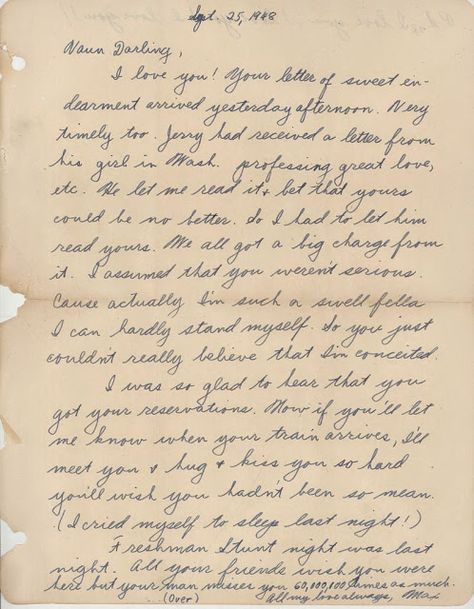 Sept. 25, 1948
Naun Darling,
I love you! Your letter of sweet en-
dearment arrived yesterday afternoon. Very
timely too. Jerry had received a letter from
his girl in Wash. professing great love,
etc. He let me read it & bet that yours
could be no better. So I had to let him
read yours. We all got a big charge from
it. I assumed that you weren't serious.
Cause actually I'm such a swell fella
I can hardly stand myself. So you just
couldn't really believe that I'm conceited.
I was so glad to hear that you
got your reservations. Now if you'll let
me know when your train arrives, I'll
meet you & hug & kiss you so hard
you'll wish you hadn't been so mean.
(I cried myself to sleep last night!)
Freshman Stunt night was last
night. All your friends wish you were
here but your man misses you 60,100,100 times as much.
(Over) All my love always, Max